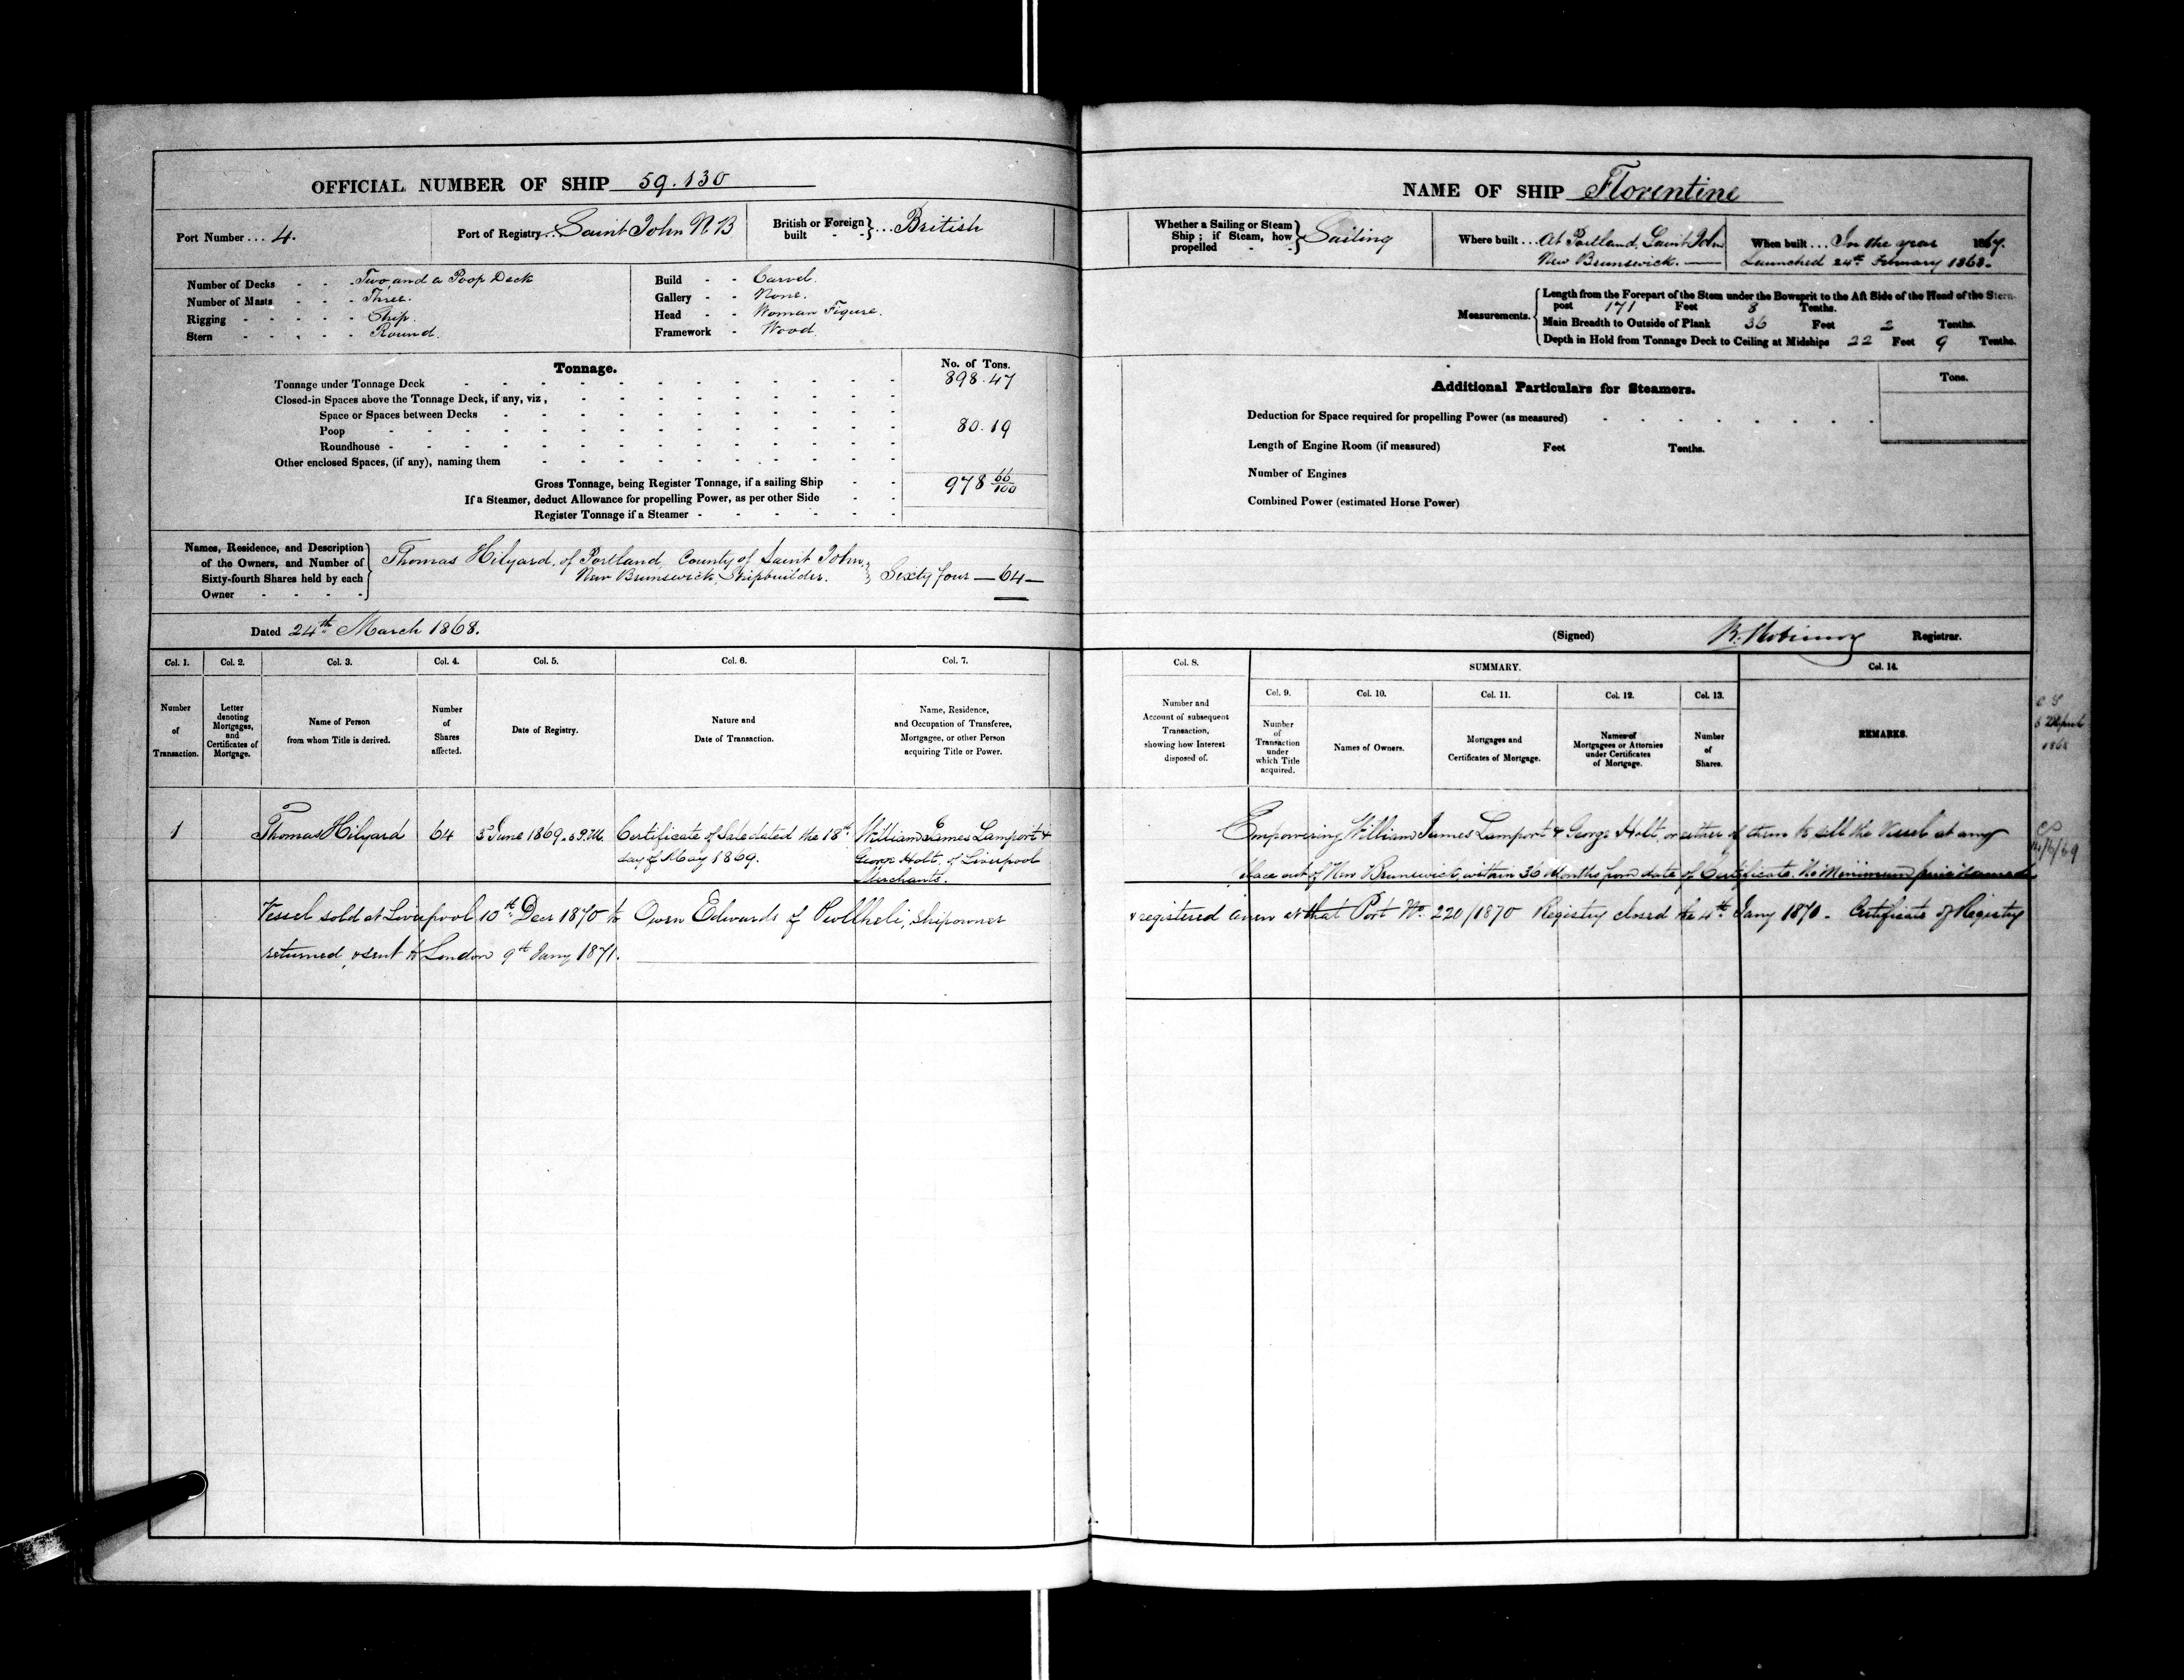 OFFICIAL NUMBER OF SHIP 59.130
Port Number ... 4.
Port of Registry ... Saint John N.B
British or Foreign built - - } ... British
Number of Decks - - - Two and a Poop Deck
Number of Masts - - - Three.
Rigging - - - - - Ship.
Stern - - - - - Round.
Build - - Carvel.
Gallery - - None.
Head - - Woman Figure.
Framework - Wood.
Tonnage.
No. of Tons.
Tonnage under Tonnage Deck 898.47
Closed-in Spaces above the Tonnage Deck, if any, viz,
Space or Spaces between Decks
Poop 80.19
Roundhouse
Other enclosed Spaces, (if any), naming them
Gross Tonnage, being Register Tonnage, if a sailing Ship 978 66/100
If a Steamer, deduct Allowance for propelling Power, as per other Side
Register Tonnage if a Steamer
Names, Residence, and Description
of the Owners, and Number of
Sixty-fourth Shares held by each
Owner
Thomas Hilyard, of Portland, County of Saint John,
New Brunswick, Shipbuilder. } Sixty four — 64 —
Dated 24th March 1868.
Col. 1. Col. 2. Col. 3. Col. 4. Col. 5. Col. 6. Col. 7.
Number of Transaction.
Letter denoting Mortgages, and Certificates of Mortgage.
Name of Person from whom Title is derived.
Number of Shares affected.
Date of Registry.
Nature and Date of Transaction.
Name, Residence, and Occupation of Transferee, Mortgagee, or other Person acquiring Title or Power.
1 Thomas Hilyard 64 June 1869 Certificate of Sale dated the 18th William James Lamport &
day of May 1869. George Holt, of Liverpool
Merchants.
Vessel sold at Liverpool 10th Decr 1870 to Owen Edwards of Pwllheli, Shipowner
returned, & sent to London 9th Jany 1871.
NAME OF SHIP Florentine
Whether a Sailing or Steam Ship; if Steam, how propelled } Sailing
Where built ... At Portland, Saint John
New Brunswick.
When built ... In the year 1867.
Launched 24th February 1868.
Measurements.
Length from the Forepart of the Stem under the Bowsprit to the Aft Side of the Head of the Stern-
post 171 Feet 8 Tenths.
Main Breadth to Outside of Plank 36 Feet 2 Tenths.
Depth in Hold from Tonnage Deck to Ceiling at Midships 22 Feet 9 Tenths.
Additional Particulars for Steamers.
Tons.
Deduction for Space required for propelling Power (as measured)
Length of Engine Room (if measured) Feet Tenths.
Number of Engines
Combined Power (estimated Horse Power)
(Signed) Registrar.
Col. 8. SUMMARY. Col. 14.
Col. 9. Col. 10. Col. 11. Col. 12. Col. 13.
Number and Account of subsequent Transaction, showing how Interest disposed of.
Number of Transaction under which Title acquired.
Names of Owners.
Mortgages and Certificates of Mortgage.
Names of Mortgagees or Attornies under Certificates of Mortgage.
Number of Shares.
REMARKS.
Empowering William James Lamport & George Holt, or either of them to sell the Vessel at any
place out of New Brunswick, within 36 Months from date of Certificate. No Minimum price named
& registered anew at that Port No. 220/1870 Registry closed the 4th Jany 1871. Certificate of Registry